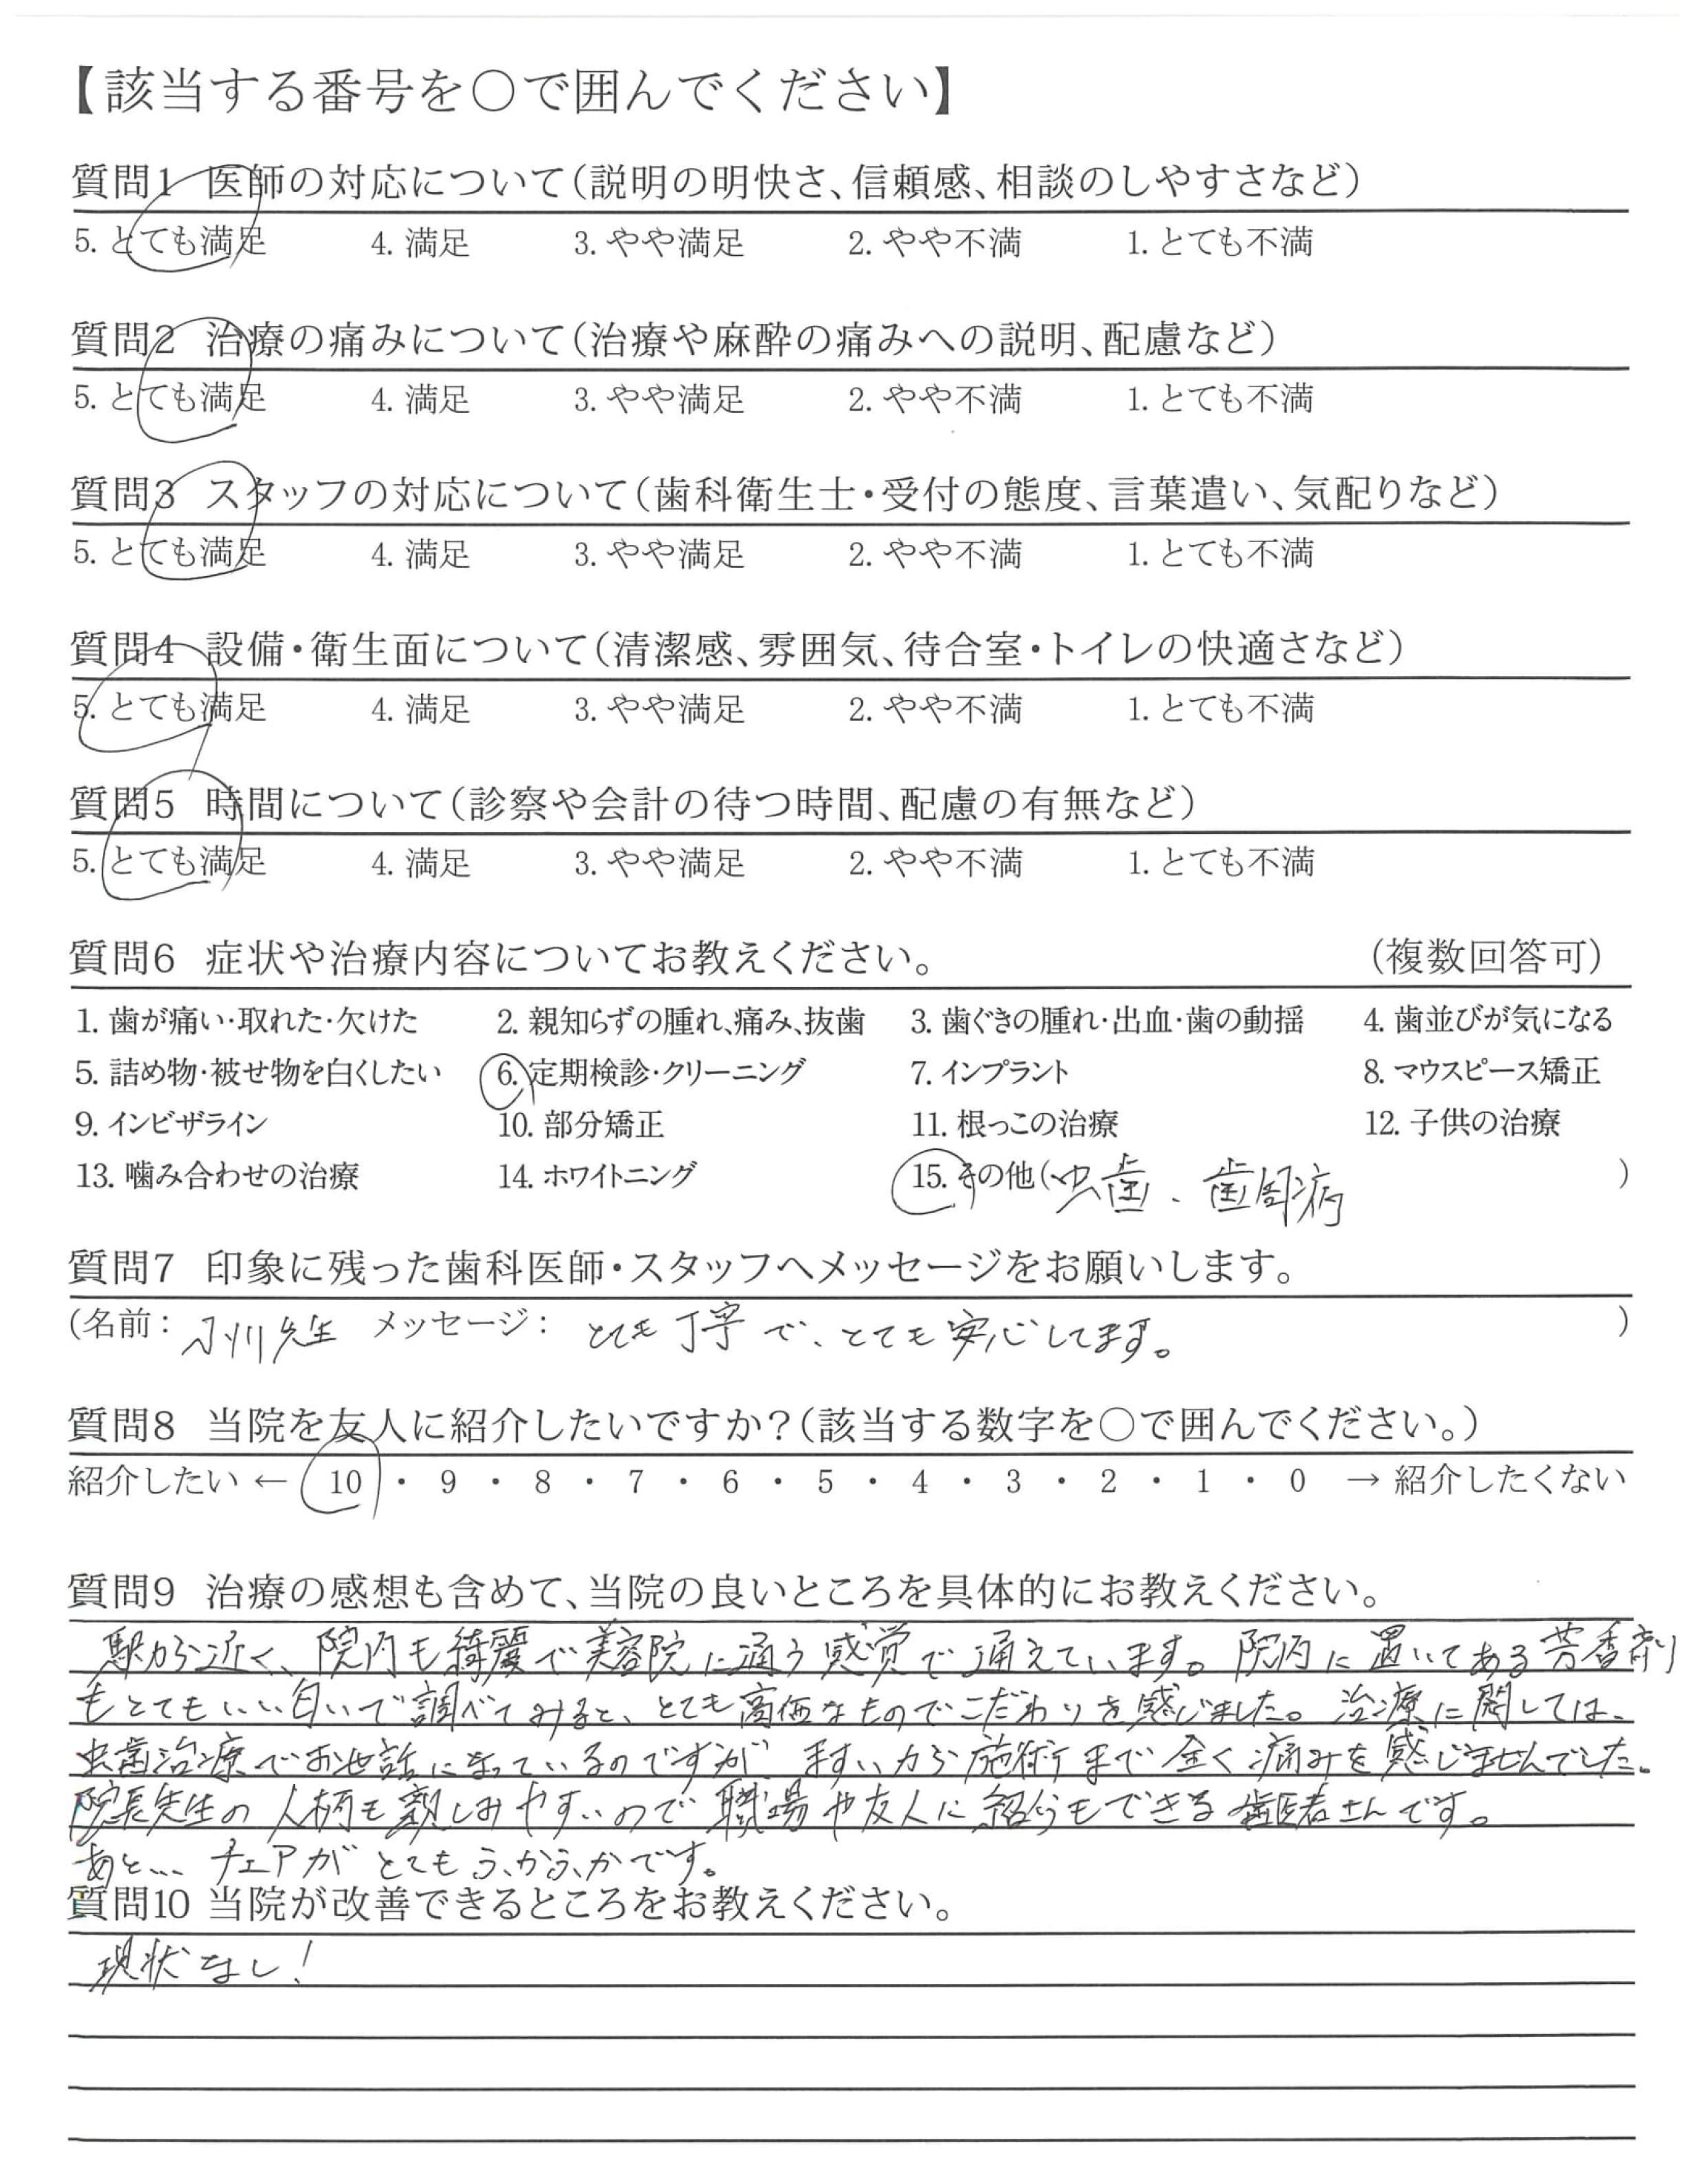 【該当する番号を○で囲んでください】
質問1 医師の対応について(説明の明快さ、信頼感、相談のしやすさなど)
5. とても満足 4. 満足 3. やや満足 2. やや不満 1. とても不満
質問2 治療の痛みについて(治療や麻酔の痛みへの説明、配慮など)
5. とても満足 4. 満足 3. やや満足 2. やや不満 1. とても不満
質問3 スタッフの対応について(歯科衛生士・受付の態度、言葉遣い、気配りなど)
5. とても満足 4. 満足 3. やや満足 2. やや不満 1. とても不満
質問4 設備・衛生面について(清潔感、雰囲気、待合室・トイレの快適さなど)
5. とても満足 4. 満足 3. やや満足 2. やや不満 1. とても不満
質問5 時間について(診察や会計の待つ時間、配慮の有無など)
5. とても満足 4. 満足 3. やや満足 2. やや不満 1. とても不満
質問6 症状や治療内容についてお教えください。 (複数回答可)
1. 歯が痛い・取れた・欠けた 2. 親知らずの腫れ、痛み、抜歯 3. 歯ぐきの腫れ・出血・歯の動揺 4. 歯並びが気になる
5. 詰め物・被せ物を白くしたい 6. 定期検診・クリーニング 7. インプラント 8. マウスピース矯正
9. インビザライン 10. 部分矯正 11. 根っこの治療 12. 子供の治療
13. 噛み合わせの治療 14. ホワイトニング 15. その他(虫歯、歯周病 )
質問7 印象に残った歯科医師・スタッフへメッセージをお願いします。
(名前: 先生 メッセージ: とても丁寧で、とても安心してます。 )
質問8 当院を友人に紹介したいですか?(該当する数字を○で囲んでください。)
紹介したい ← 10 ・ 9 ・ 8 ・ 7 ・ 6 ・ 5 ・ 4 ・ 3 ・ 2 ・ 1 ・ 0 → 紹介したくない
質問9 治療の感想も含めて、当院の良いところを具体的にお教えください。
駅から近く、院内も綺麗で美容院に通う感覚で通えています。院内に置いてある芳香剤
もとてもいい匂いで調べてみると、とても高価なものでこだわりを感じました。治療に関しては、
虫歯治療でお世話になっているのですが、ますいから施術まで全く痛みを感じませんでした。
院長先生の人柄も親しみやすいので職場や友人に紹介もできる歯医者さんです。
あと... チェアがとてもふかふかです。
質問10 当院が改善できるところをお教えください。
現状なし!